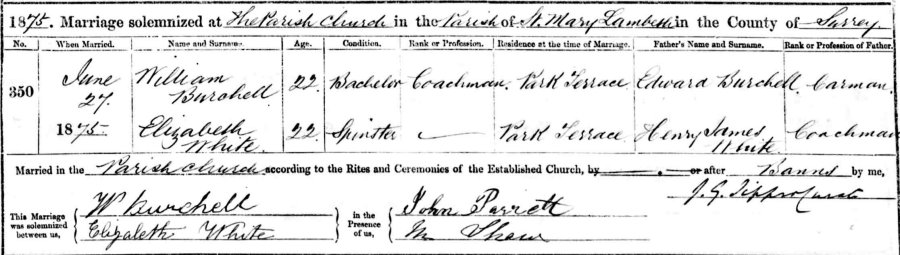 1875. Marriage solemnized at The Parish Church in the Parish of St. Mary Lambeth in the County of Surrey
No. When Married. Name and Surname. Age. Condition. Rank or Profession. Residence at the time of Marriage. Father's Name and Surname. Rank or Profession of Father.
350 June 27. 1875. William Burchell 22 Bachelor Coachman Park Terrace Edward Burchell Carman.
Elizabeth White 22 Spinster — Park Terrace Henry James White Coachman
Married in the Parish Church according to the Rites and Ceremonies of the Established Church, by — . or after Banns by me,
J. G. Curate
This Marriage was solemnized between us, W Burchell Elizabeth White in the Presence of us, John Parrett M Shaw